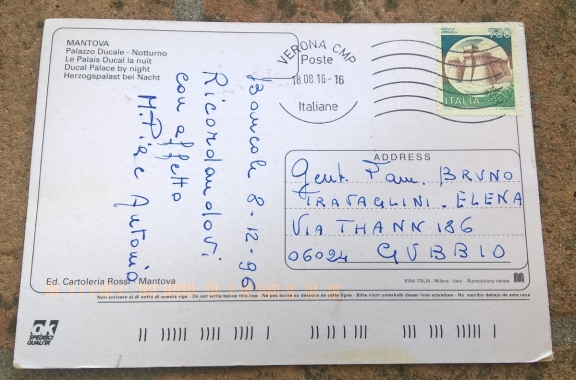 MANTOVA
Palazzo Ducale - Notturno
Le Palais Ducal la nuit
Ducal Palace by night
Herzogspalast bei Nacht
VERONA CMP
Poste
18.08.16-16
Italiane
750
ITALIA
8-12-96
Ricordandovi
con affetto
M. Pia e Antonia
ADDRESS
Gent. Fam. BRUNO
TRAVAGLINI. ELENA
VIA THANN 186
06024 GUBBIO
Ed. Cartoleria Rossi - Mantova
KINA ITALIA - Milano - Italy - Riproduzione vietata
Non scrivere al di sotto di questa riga - Do not write below this line - Ne pas écrire au dessous de cette ligne - Bitte nicht unterhalb dieser linie schreiben - No escribir debajo de esta raya
ok
SPEDISCI
QUALITÀ